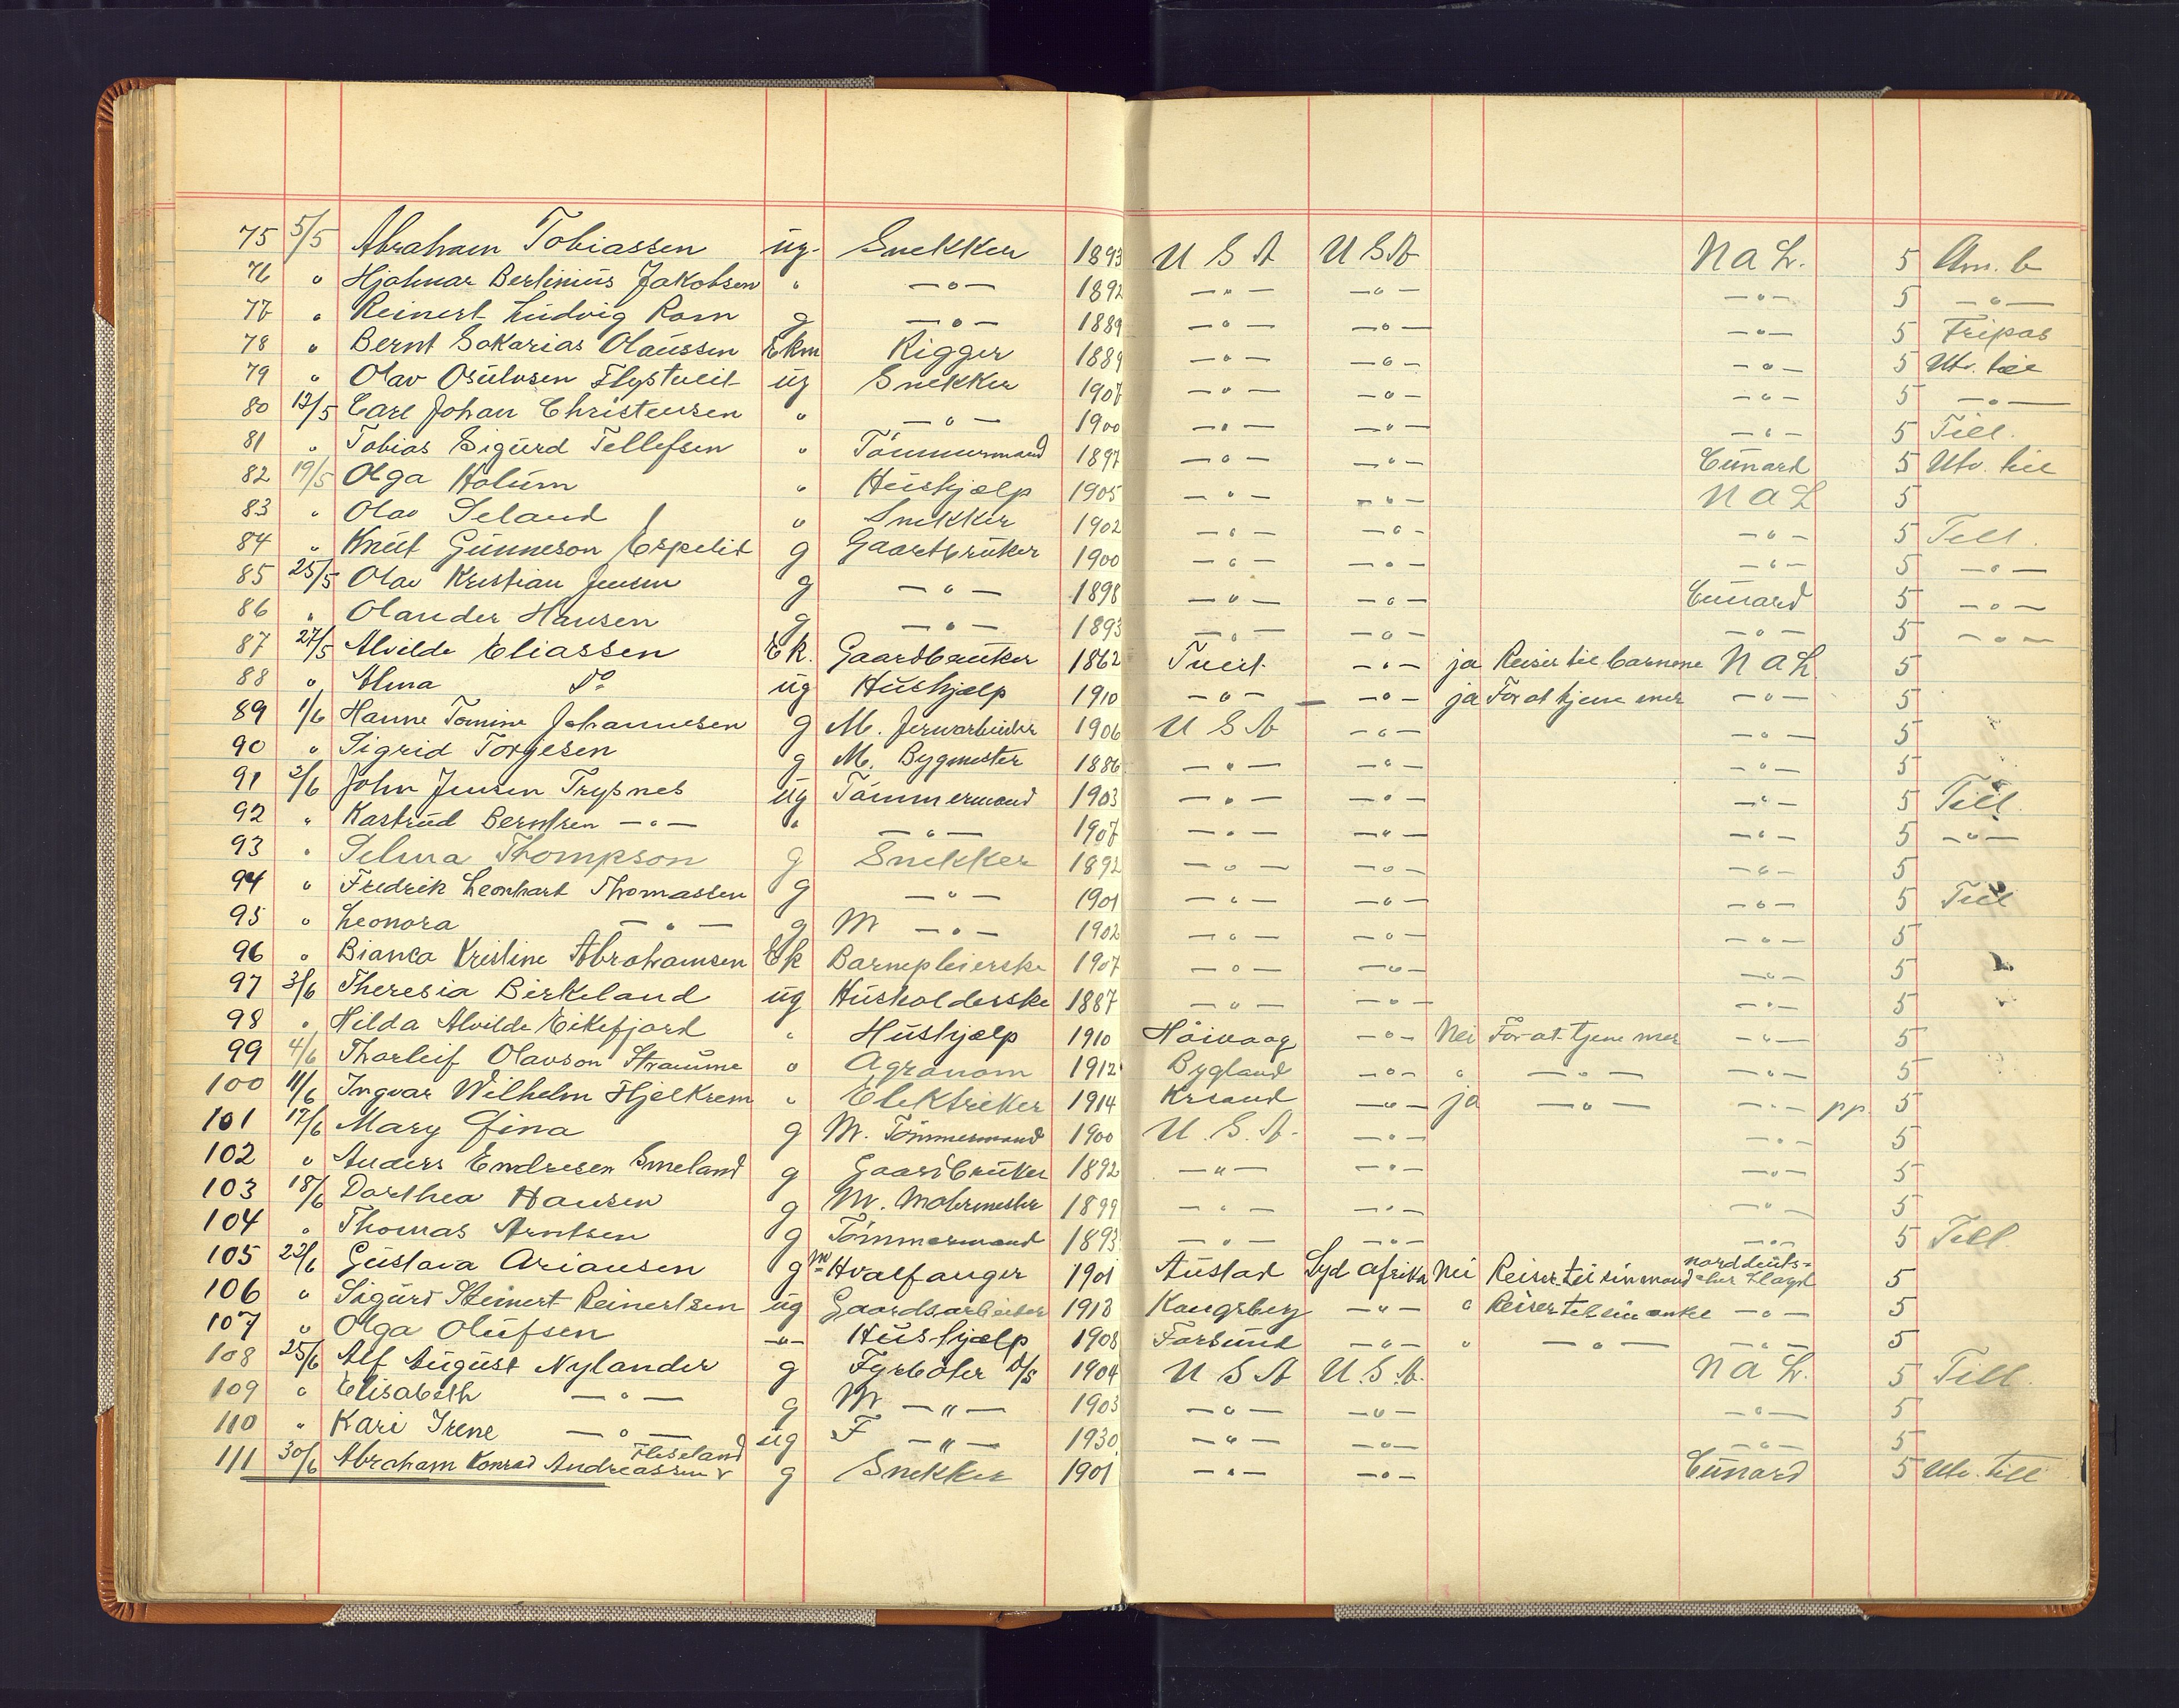 75 5/5 Abraham Tobiassen ug. Snekker 1893 U S A U S A N A L. 5 Am. b
76 " Hjalmar Bertinius Jakobsen " —"— 1892 —"— —"— —"— 5 —"—
77 " Reinert Ludvig Rom g —"— 1889 —"— —"— —"— 5 Fripas
78 " Bernt Sakarias Olaussen Ekm Rigger 1889 —"— —"— —"— 5 Utv. till
79 " Olav Osulvsen Flystveit ug Snekker 1907 —"— —"— —"— 5 —"—
80 12/5 Carl Johan Christensen " —"— 1900 —"— —"— —"— 5 Till.
81 " Tobias Sigurd Tellefsen " Tömmermand 1897 —"— —"— Cunard 5 Utv. till
82 19/5 Olga Holum " Hushjælp 1905 —"— —"— N A L 5
83 " Olav Seland " Snekker 1902 —"— —"— —"— 5 Till.
84 " Knut Gunneson Espelid g Gaardbruker 1900 —"— —"— —"— 5 —"—
85 25/5 Olav Kristian Jensen g —"— 1898 —"— —"— Cunard 5 —"—
86 " Olander Hansen g —"— 1893 —"— —"— —"— 5 —"—
87 27/5 Alvilde Eliassen Ek. Gaardbruker 1862 Tveit —"— ja Reiser til barnene N A L 5
88 " Alma Do ug Hushjælp 1910 —"— —"— ja For at tjene mer —"— 5
89 1/6 Hanne Tomine Johannesen g M. Jernarbeider 1906 U S A —"— —"— 5
90 " Sigrid Torgesen g M. Bygmester 1886 —"— —"— —"— 5
91 2/6 John Jensen Trysnes ug Tömmermand 1903 —"— —"— —"— 5 Till.
92 " Kastrud Berntsen —"— " —"— 1907 —"— —"— —"— 5 —"—
93 " Selma Thompson g Snekker 1892 —"— —"— —"— 5
94 " Fredrik Leonhart Thomassen g —"— 1901 —"— —"— —"— 5 Till
95 " Leonora —"— g M —"— 1902 —"— —"— —"— 5
96 " Bianca Kristine Abrahamsen Ek Barnepleierske 1907 —"— —"— —"— 5
97 3/6 Theresia Birkeland ug Husholderske 1887 —"— —"— —"— 5
98 " Hilda Alvilde Eikefjord " Hushjælp 1910 Höivaag —"— Nei For at tjene mer —"— 5
99 4/6 Thorleif Olavson Straume " Agronom 1912 Bygland —"— " —"— —"— 5
100 11/6 Ingvar Wilhelm Hjelkrem " Elektriker 1914 Krsand —"— ja —"— —"— pp. 5
101 17/6 Mary Gina g M. Tömmermand 1900 U. S. A. —"— —"— 5
102 " Anders Endresen Smeland g Gaardbruker 1892 —"— —"— —"— 5
103 18/6 Dorthea Hansen g M. Malermester 1899 —"— —"— —"— 5
104 " Thomas Arntsen g Tömmermand 1893 —"— —"— —"— 5 Till
105 22/6 Gustava Ariansen g M Hvalfanger 1901 Austad Syd afrika Nei Reiser til sin mand norddeuts= cher Lloyd 5
106 " Sigurd Steinert Reinertsen ug Gaardsarbeider 1913 Kongsberg —"— " Reiser til sin onkel —"— 5
107 " Olga Olufsen —"— Hushjælp 1908 Farsund —"— " —"— —"— 5
108 25/6 Alf August Nylander g Fyrböter D/S 1904 U S A U. S. A. N A L. 5 Till.
109 " Elisabeth —"— g M —"— 1903 —"— —"— —"— 5
110 " Kari Irene —"— ug F —"— 1930 —"— —"— —"— 5
111 30/6 Abraham Konrad Andreassen v Fleseland g Snekker 1901 —"— —"— Cunard 5 Utv. till